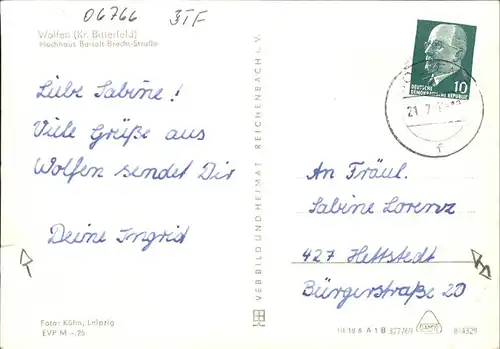 06766 3TF
Wolfen (Kr. Bitterfeld)
Hochhaus Bertolt-Brecht-Straße
10
DEUTSCHE
DEMOKRATISCHE REPUBLIK
21 7
f
Liebe Sabine!
Viele Grüße aus
Wolfen sendet Dir
Deine Ingrid
VEB BILD UND HEIMAT REICHENBACH i. V.
An Fräul.
Sabine Lorenz
427 Hettstedt
Bürgerstraße 20
Foto: Kühn, Leipzig
EVP M -.25
III 18 6 A 1 B 327/69